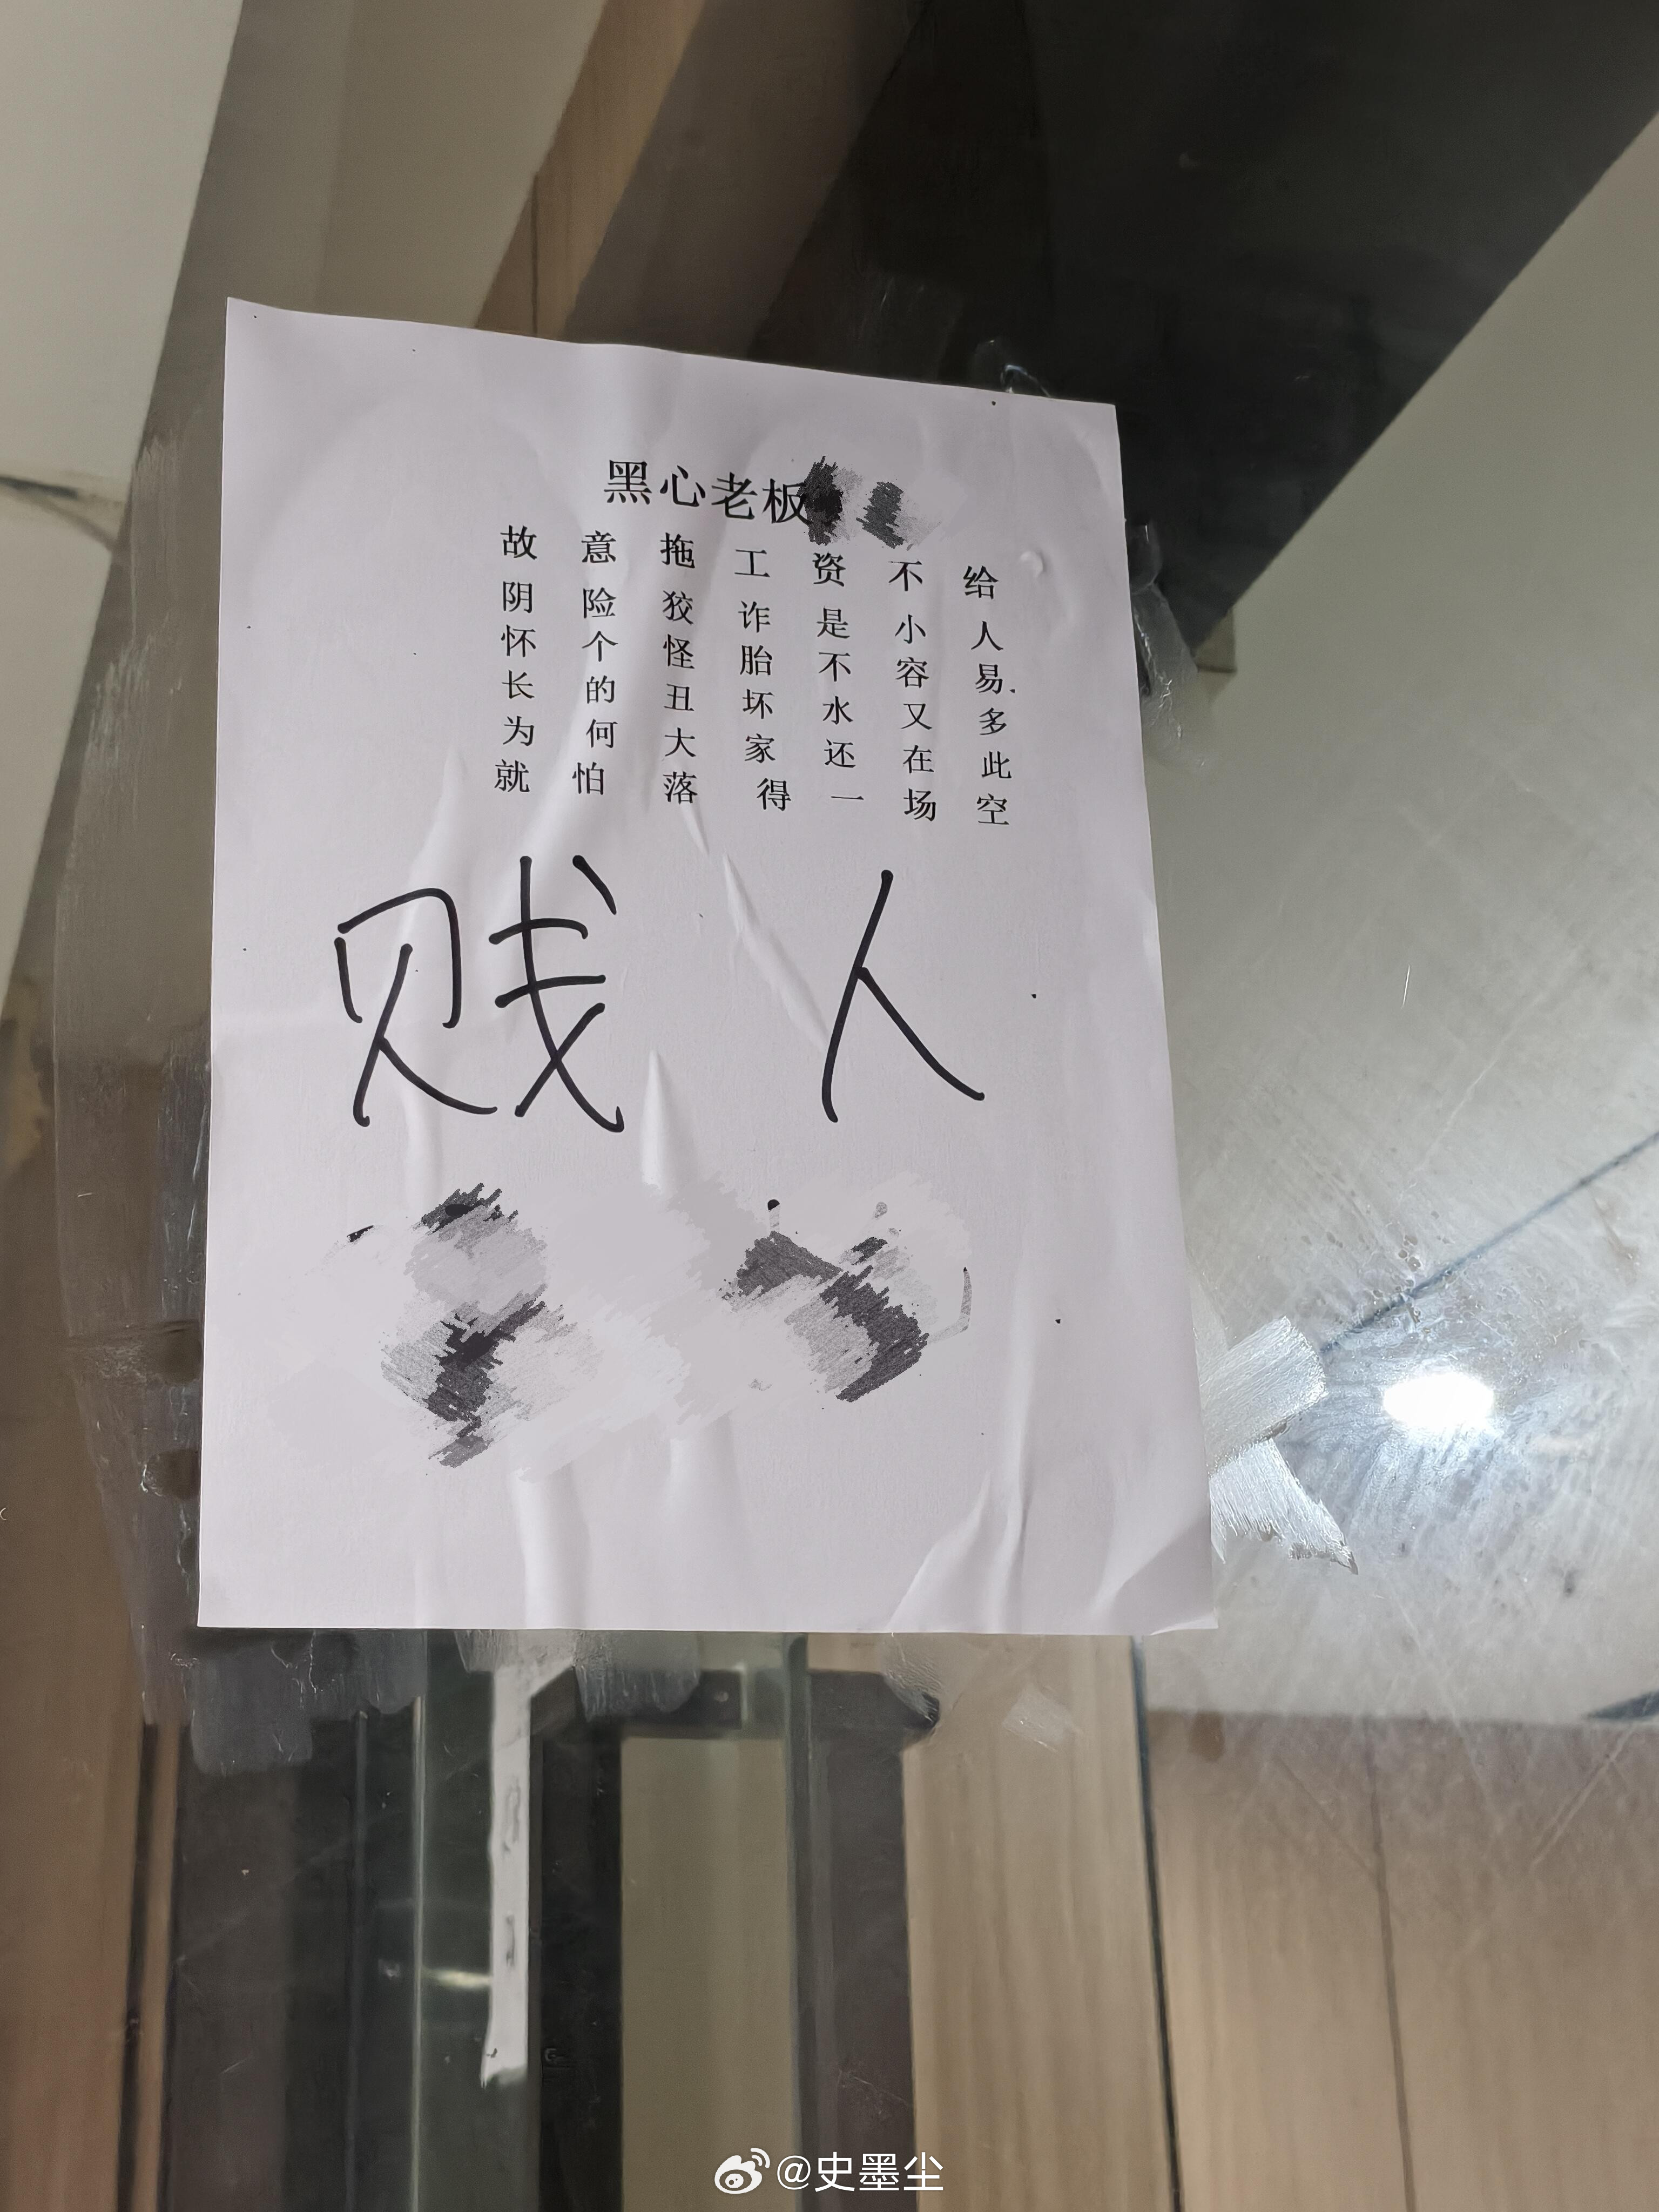 黑心老板
故意拖工资不给
阴险狡诈是小人
怀个怪胎不容易.
长的丑坏水又多
为何大家还在此
就怕落得一场空
贱人
@史墨尘